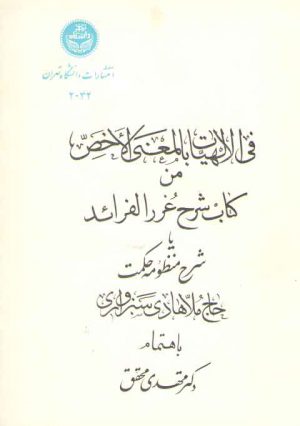 انتشارات دانشگاه تهران
۲۰۳۲
فی الالهیات بالمعنی الاخص
من
کتاب شرح غرر الفرائد
یا
شرح منظومه حکمت
حاج ملا هادی سبزواری
باهتمام
دکتر مهدی محقق